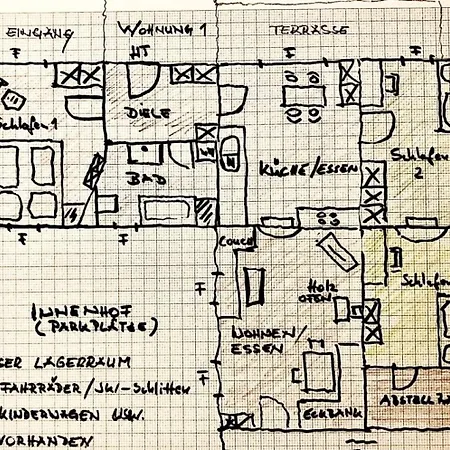 EINGANG WOHNUNG 1 TERRASSE
HT
Schlafen 1
DIELE
BAD
WM
KÜCHE/ESSEN
Schlafen
2
Couch
Holz
OFEN
Schlafen
WOHNEN/
ESSEN
ECKBANK
ABSTELL
INNENHOF
(PARKPLÄTZE)
SER LAGERRAUM
FAHRRÄDER/SKI-SCHLITTEN
KINDERWAGEN USW.
VORHANDEN